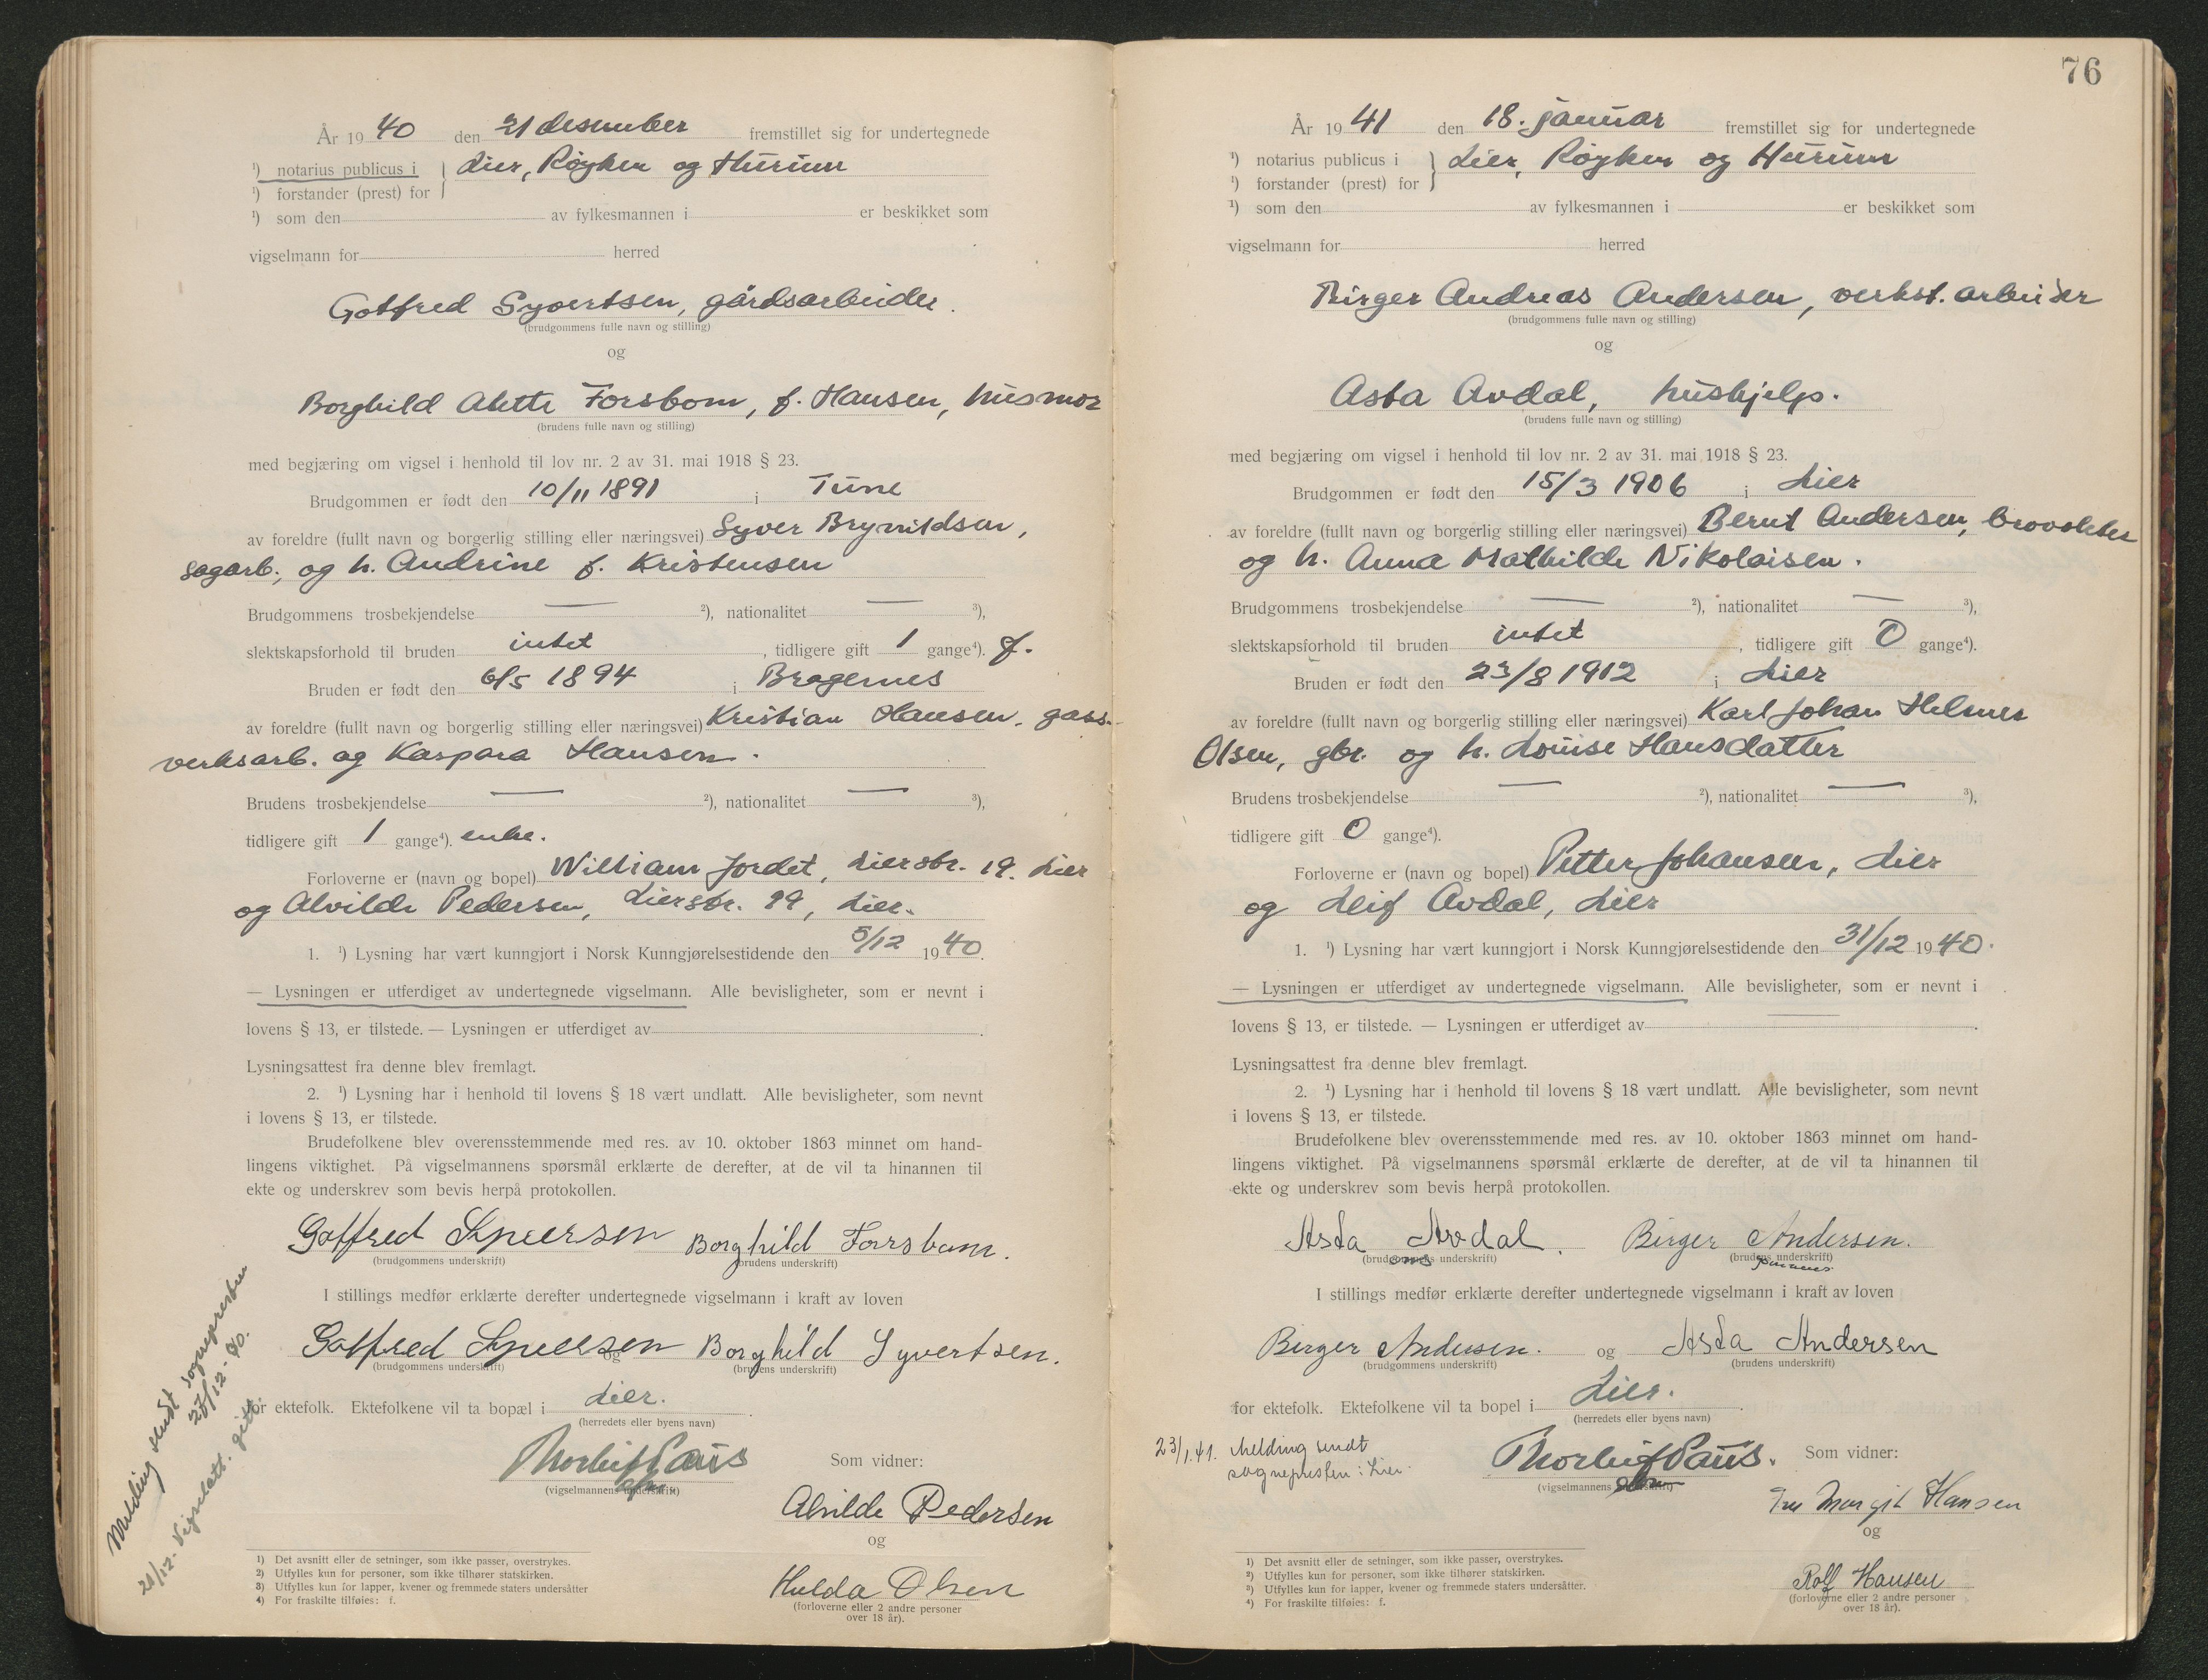 År 19 40 den 21 desember fremstillet sig for undertegnede
¹) notarius publicus i } Lier, Røyken og Hurum
¹) forstander (prest) for
¹) som den av fylkesmannen i er beskikket som
vigselmann for herred
Gotfred Syvertsen, gårdsarbeider.
(brudgommens fulle navn og stilling)
og
Borghild Alette Forsbom, f. Hansen, husmor
(brudens fulle navn og stilling)
med begjæring om vigsel i henhold til lov nr. 2 av 31. mai 1918 § 23.
Brudgommen er født den 10/11 1891 i Tune
av foreldre (fullt navn og borgerlig stilling eller næringsvei) Syver Brynildsen,
sagarb., og h. Andrine f. Kristensen
Brudgommens trosbekjendelse — ²), nationalitet — ³),
slektskapsforhold til bruden intet, tidligere gift 1 gange⁴). f.
Bruden er født den 6/5 1894 i Bragernes
av foreldre (fullt navn og borgerlig stilling eller næringsvei) Kristian Hansen, gass-
verksarb. og Kaspara Hansen.
Brudens trosbekjendelse — ²), nationalitet — ³),
tidligere gift 1 gange⁴). enke.
Forloverne er (navn og bopel) William Jordet, Lierstr. 19. Lier
og Alvilde Pedersen, Lierstr. 99, Lier.
1. ¹) Lysning har vært kunngjort i Norsk Kunngjørelsestidende den 5/12 1940.
— Lysningen er utferdiget av undertegnede vigselmann. Alle bevisligheter, som er nevnt i
lovens § 13, er tilstede. — Lysningen er utferdiget av .
Lysningsattest fra denne blev fremlagt.
2. ¹) Lysning har i henhold til lovens § 18 vært undlatt. Alle bevisligheter, som nevnt
i lovens § 13, er tilstede.
Brudefolkene blev overensstemmende med res. av 10. oktober 1863 minnet om hand-
lingens viktighet. På vigselmannens spørsmål erklærte de derefter, at de vil ta hinannen til
ekte og underskrev som bevis herpå protokollen.
Gotfred Syversen Borghild Forsbom.
(brudgommens underskrift) (brudens underskrift)
I stillings medfør erklærte derefter undertegnede vigselmann i kraft av loven
Gotfred Syversen og Borghild Syvertsen.
(brudgommens underskrift) (brudens underskrift)
for ektefolk. Ektefolkene vil ta bopæl i Lier.
(herredets eller byens navn)
Thorleif Paus Som vidner:
(vigselmannens underskrift)
Alvilde Pedersen
og
Hulda Olsen
(forloverne eller 2 andre personer
over 18 år).
Melding sendt sognepresten
27/12-40.
21/12- Vigselatt. gitt.
1) Det avsnitt eller de setninger, som ikke passer, overstrykes.
2) Utfylles kun for personer, som ikke tilhører statskirken.
3) Utfylles kun for lapper, kvener og fremmede staters undersåtter
4) For fraskilte tilføies: f.
76
År 19 41 den 18. januar fremstillet sig for undertegnede
¹) notarius publicus i } Lier, Røyken og Hurum
¹) forstander (prest) for
¹) som den av fylkesmannen i er beskikket som
vigselmann for herred
Birger Andreas Andersen, verkst. arbeider
(brudgommens fulle navn og stilling)
og
Asta Avdal, hushjelp.
(brudens fulle navn og stilling)
med begjæring om vigsel i henhold til lov nr. 2 av 31. mai 1918 § 23.
Brudgommen er født den 15/3 1906 i Lier
av foreldre (fullt navn og borgerlig stilling eller næringsvei) Bernt Andersen,
og h. Anna Mathilde Nikolaisen.
Brudgommens trosbekjendelse — ²), nationalitet — ³),
slektskapsforhold til bruden intet, tidligere gift 0 gange⁴).
Bruden er født den 23/8 1912 i Lier
av foreldre (fullt navn og borgerlig stilling eller næringsvei) Karl Johan Helmer
Olsen, gbr. og h. Louise Hansdatter
Brudens trosbekjendelse — ²), nationalitet — ³),
tidligere gift 0 gange⁴).
Forloverne er (navn og bopel) Petter Johansen, Lier
og Leif Avdal, Lier
1. ¹) Lysning har vært kunngjort i Norsk Kunngjørelsestidende den 31/12 1940.
— Lysningen er utferdiget av undertegnede vigselmann. Alle bevisligheter, som er nevnt i
lovens § 13, er tilstede. — Lysningen er utferdiget av .
Lysningsattest fra denne blev fremlagt.
2. ¹) Lysning har i henhold til lovens § 18 vært undlatt. Alle bevisligheter, som nevnt
i lovens § 13, er tilstede.
Brudefolkene blev overensstemmende med res. av 10. oktober 1863 minnet om hand-
lingens viktighet. På vigselmannens spørsmål erklærte de derefter, at de vil ta hinannen til
ekte og underskrev som bevis herpå protokollen.
Asta Avdal. Birger Andersen.
(brudens underskrift) (brudgommens underskrift)
I stillings medfør erklærte derefter undertegnede vigselmann i kraft av loven
Birger Andersen. og Asta Andersen
(brudgommens underskrift) (brudens underskrift)
for ektefolk. Ektefolkene vil ta bopel i Lier.
(herredets eller byens navn)
23/1.41. Melding sendt
sognepresten i Lier.
Thorleif Paus. Som vidner:
(vigselmannens underskrift)
Fru Margit Hansen
og
Rolf Hansen
(forloverne eller 2 andre personer
over 18 år).
1) Det avsnitt eller de setninger, som ikke passer, overstrykes.
2) Utfylles kun for personer, som ikke tilhører statskirken.
3) Utfylles kun for lapper, kvener og fremmede staters undersåtter.
4) For fraskilte tilføies: f.